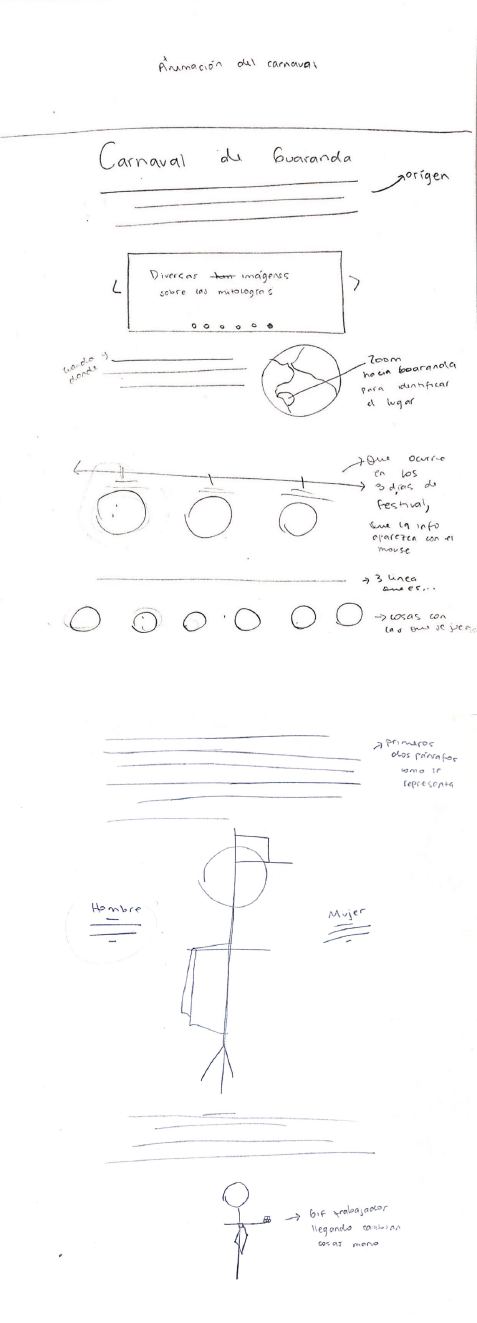 Animación del carnaval
Carnaval de Guaranda
origen
Diversas imágenes
sobre las mitologías
cuando y
donde
Zoom
hacia Guaranda
para identificar
el lugar
Que ocurre
en los
3 días de
festival,
que la info
aparezca con el
mouse
3 linea
que es...
cosas con
las que se juega
primeros
dos párrafos
como se
representa
Hombre
Mujer
Gif trabajador
llegando
cosas mano